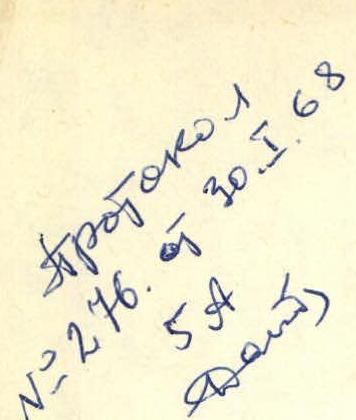 Протокол
№ 276. от 30.I.68
5 А